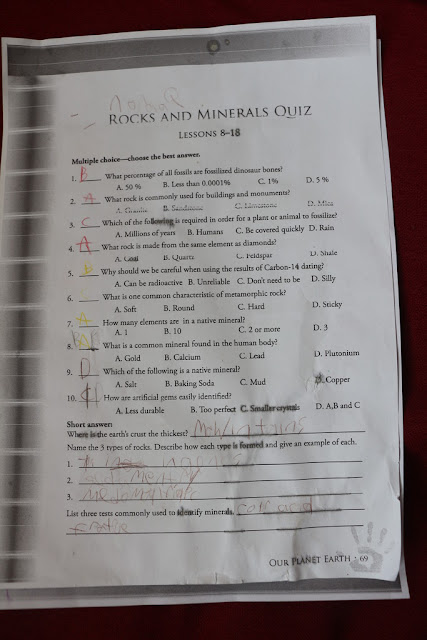 ROCKS AND MINERALS QUIZ
LESSONS 8–18
Multiple choice—choose the best answer.
1. B What percentage of all fossils are fossilized dinosaur bones?
A. 50 % B. Less than 0.0001% C. 1% D. 5 %
2. A What rock is commonly used for buildings and monuments?
A. Granite B. Sandstone C. Limestone D. Mica
3. C Which of the following is required in order for a plant or animal to fossilize?
A. Millions of years B. Humans C. Be covered quickly D. Rain
4. A What rock is made from the same element as diamonds?
A. Coal B. Quartz C. Feldspar D. Shale
5. b Why should we be careful when using the results of Carbon-14 dating?
A. Can be radioactive B. Unreliable C. Don't need to be D. Silly
6. What is one common characteristic of metamorphic rock?
A. Soft B. Round C. Hard D. Sticky
7. A How many elements are in a native mineral?
A. 1 B. 10 C. 2 or more D. 3
8. What is a common mineral found in the human body?
A. Gold B. Calcium C. Lead D. Plutonium
9. D Which of the following is a native mineral?
A. Salt B. Baking Soda C. Mud D. Copper
10. How are artificial gems easily identified?
A. Less durable B. Too perfect C. Smaller crystals D. A,B and C
Short answer:
Where is the earth's crust the thickest?
Name the 3 types of rocks. Describe how each type is formed and give an example of each.
1.
2.
3.
List three tests commonly used to identify minerals.
OUR PLANET EARTH • 69